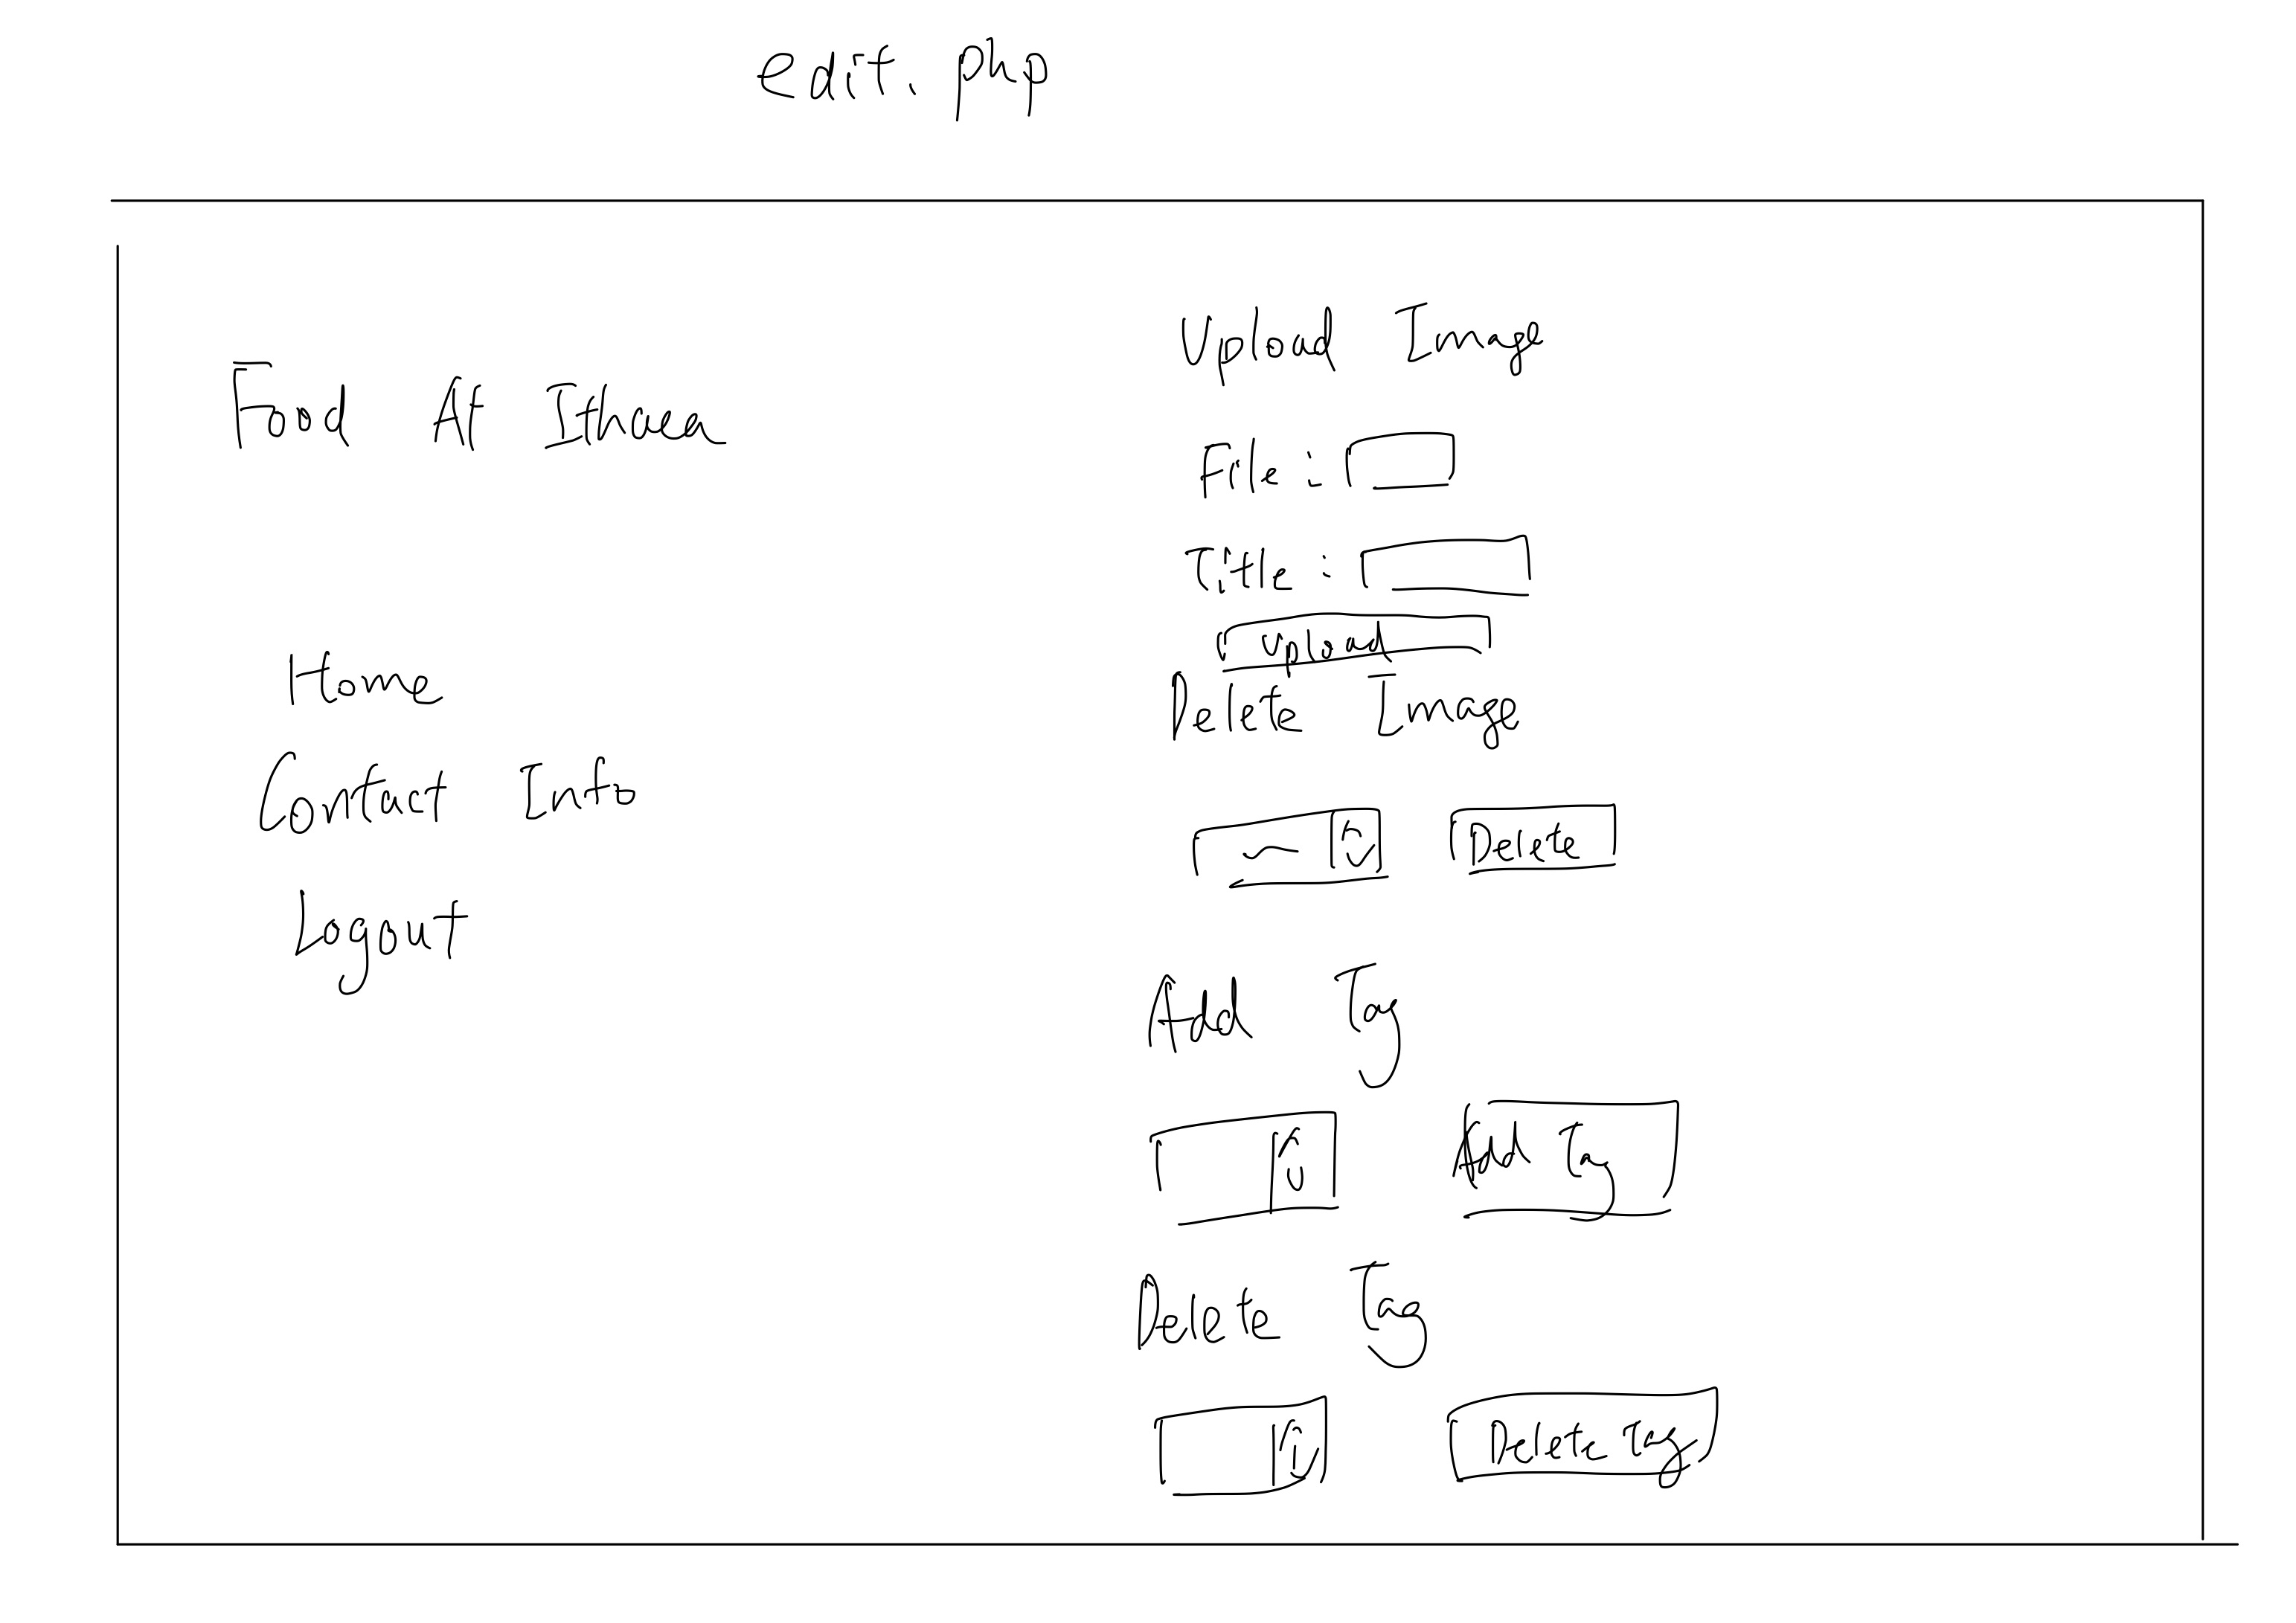 edit.php
Food At Ithaca
Home
Contact Info
Logout
Upload Image
File :
Title :
Upload
Delete Image
Delete
Add Tag
Add Tag
Delete Tag
Delete Tag